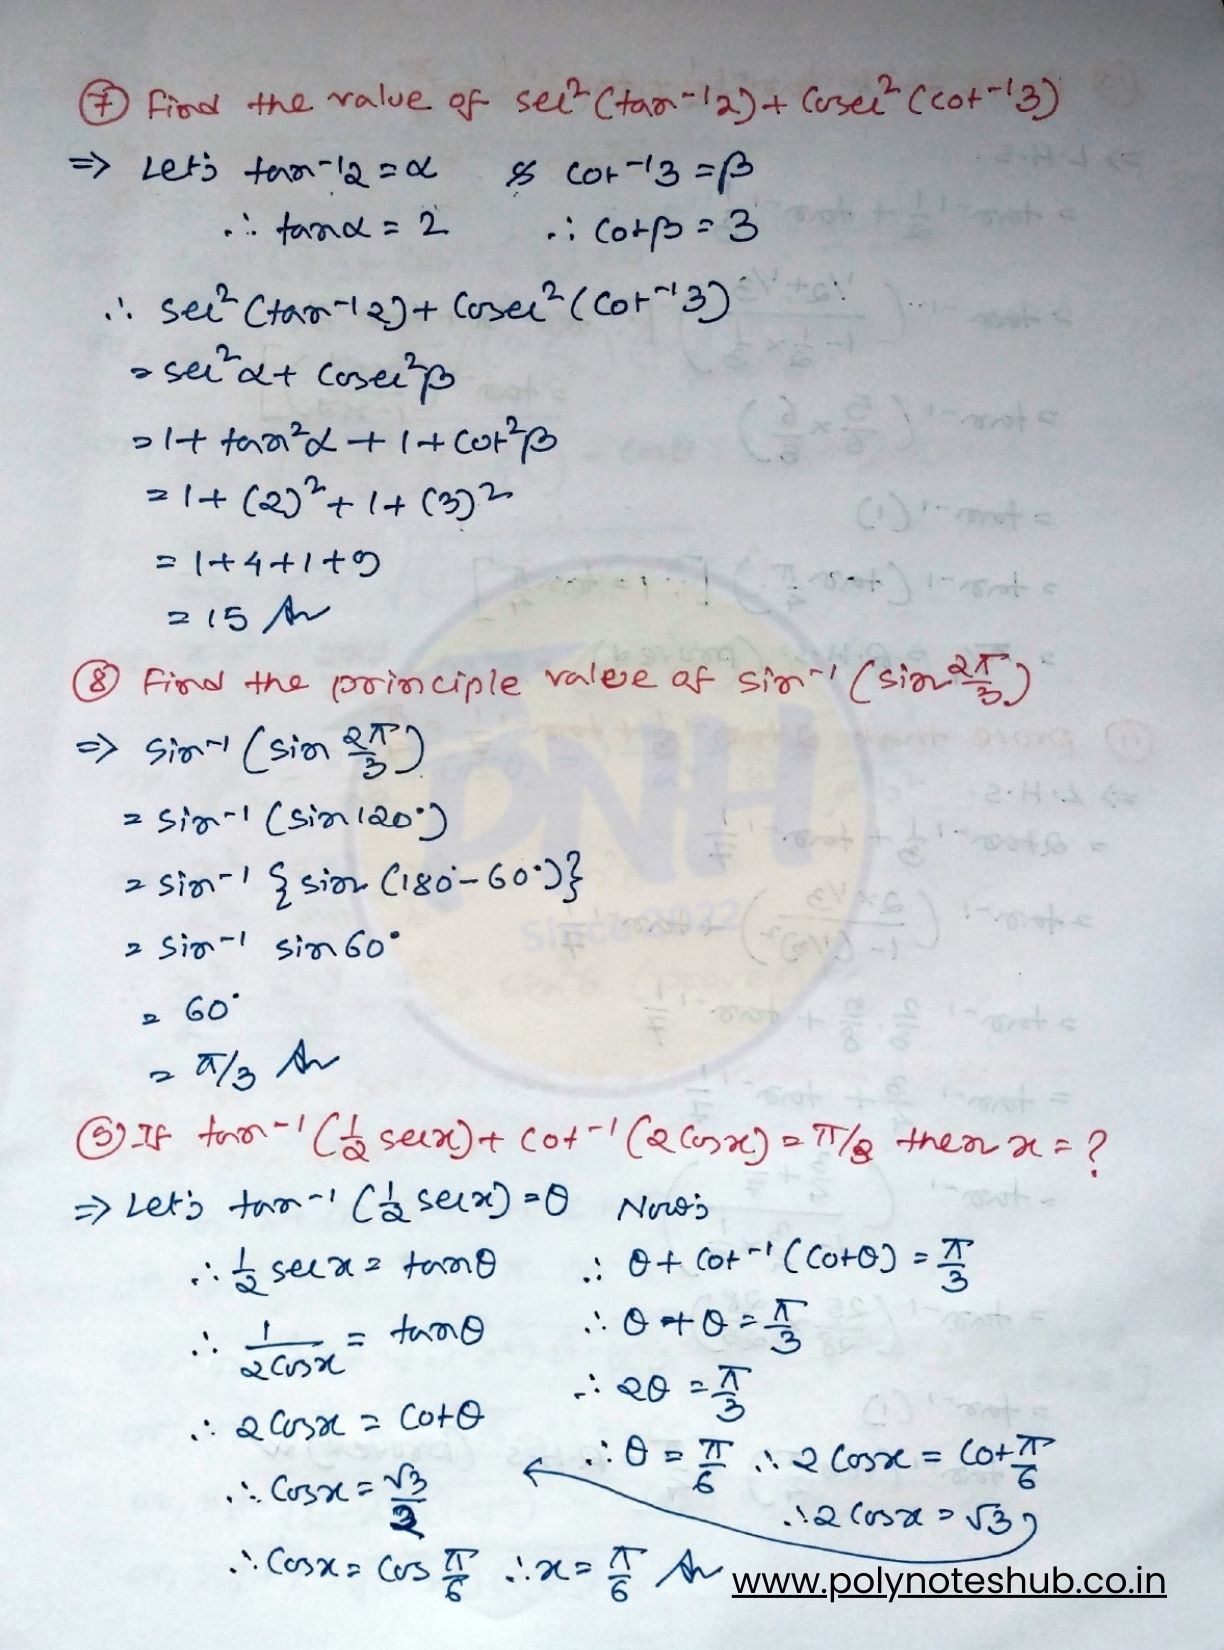 ⑦ Find the value of sec²(tan⁻¹2) + cosec²(cot⁻¹3)
⇒ Let, tan⁻¹2 = α & cot⁻¹3 = β
∴ tanα = 2 ∴ cotβ = 3
∴ sec²(tan⁻¹2) + cosec²(cot⁻¹3)
= sec²α + cosec²β
= 1 + tan²α + 1 + cot²β
= 1 + (2)² + 1 + (3)²
= 1 + 4 + 1 + 9
= 15 An
⑧ Find the principle value of sin⁻¹(sin 2π/3)
⇒ sin⁻¹(sin 2π/3)
= sin⁻¹(sin 120°)
= sin⁻¹{sin(180° - 60°)}
= sin⁻¹ sin 60°
= 60°
= π/3 An
⑨ If tan⁻¹(1/2 sec x) + cot⁻¹(2 cos x) = π/3 then x = ?
⇒ Let, tan⁻¹(1/2 sec x) = θ Now,
∴ 1/2 sec x = tanθ ∴ θ + cot⁻¹(cotθ) = π/3
∴ 1/2cos x = tanθ ∴ θ + θ = π/3
∴ 2θ = π/3
∴ 2 cos x = cotθ
∴ θ = π/6 ∴ 2 cos x = cot π/6
∴ cos x = √3/2
∴ 2 cos x = √3
∴ cos x = cos π/6 ∴ x = π/6 An
www.polynoteshub.co.in
PNH
since 2022